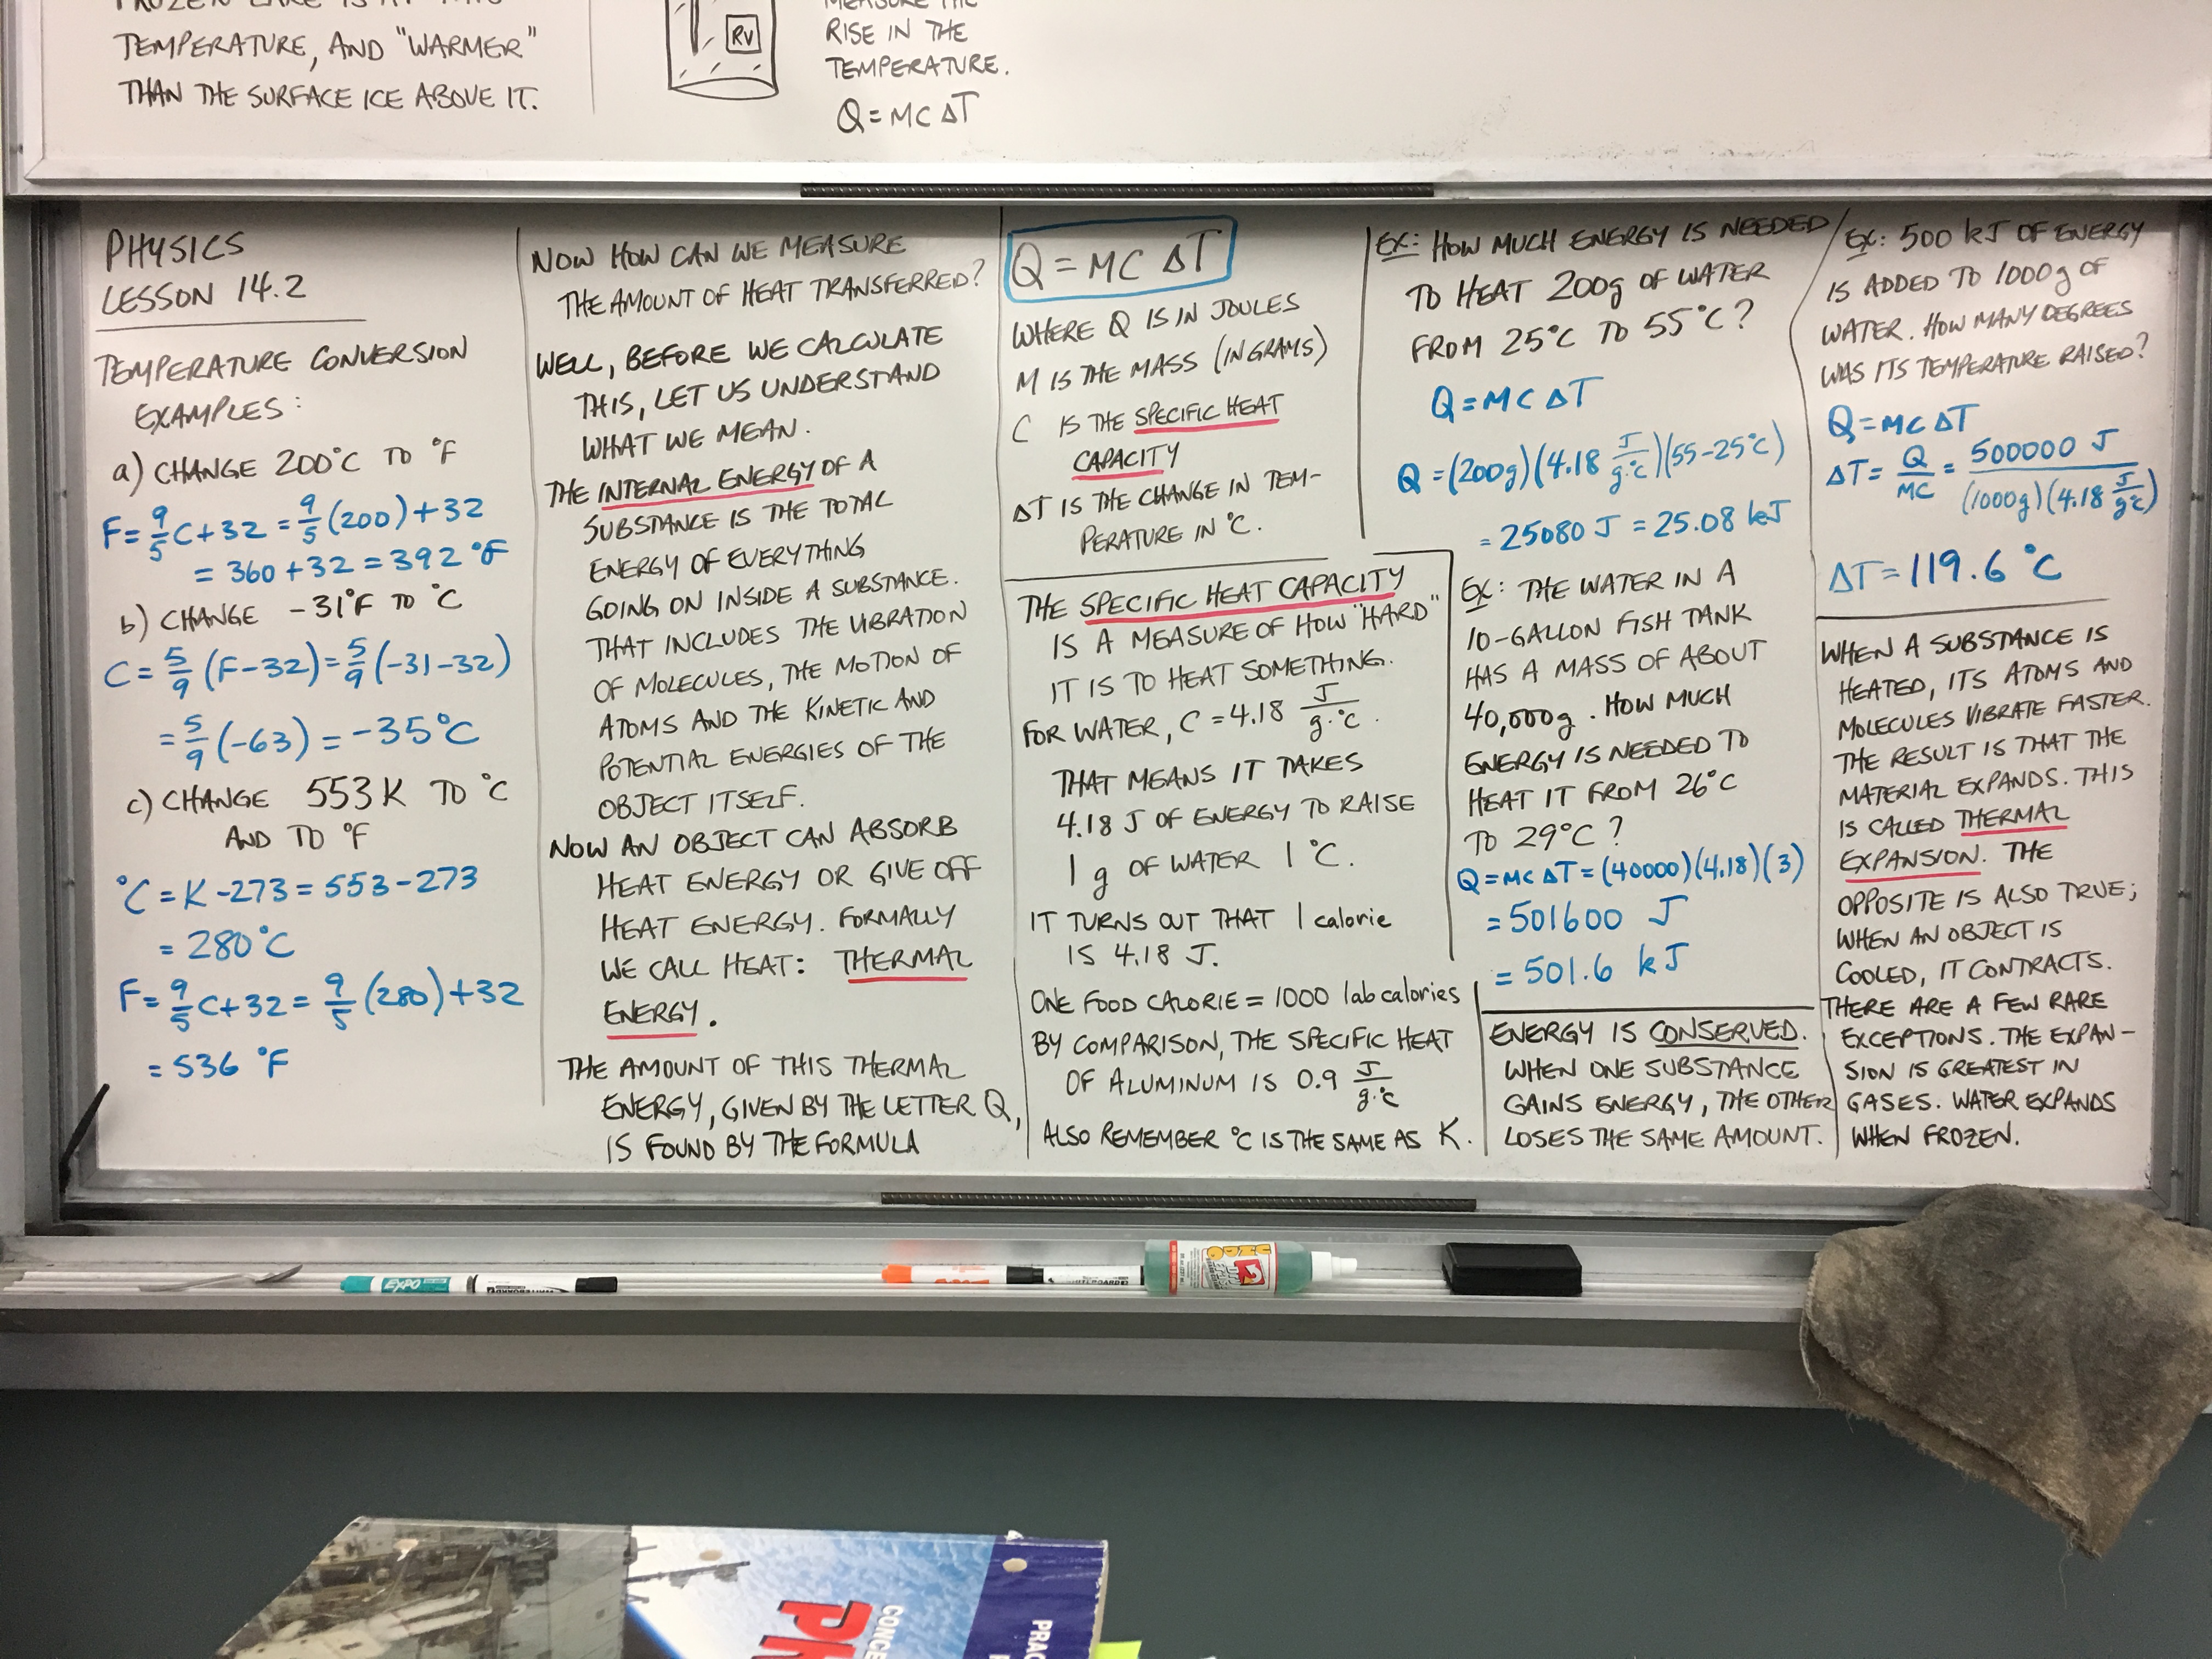 TEMPERATURE, AND "WARMER"
THAN THE SURFACE ICE ABOVE IT.
RV
MEASURE THE
RISE IN THE
TEMPERATURE.
Q = MC ΔT
PHYSICS
LESSON 14.2
TEMPERATURE CONVERSION
EXAMPLES:
a) CHANGE 200°C TO °F
F = 9/5 C + 32 = 9/5 (200) + 32
= 360 + 32 = 392 °F
b) CHANGE -31°F TO °C
C = 5/9 (F - 32) = 5/9 (-31 - 32)
= 5/9 (-63) = -35°C
c) CHANGE 553 K TO °C
AND TO °F
°C = K - 273 = 553 - 273
= 280°C
F = 9/5 C + 32 = 9/5 (280) + 32
= 536 °F
NOW HOW CAN WE MEASURE
THE AMOUNT OF HEAT TRANSFERRED?
WELL, BEFORE WE CALCULATE
THIS, LET US UNDERSTAND
WHAT WE MEAN.
THE INTERNAL ENERGY OF A
SUBSTANCE IS THE TOTAL
ENERGY OF EVERYTHING
GOING ON INSIDE A SUBSTANCE.
THAT INCLUDES THE VIBRATION
OF MOLECULES, THE MOTION OF
ATOMS AND THE KINETIC AND
POTENTIAL ENERGIES OF THE
OBJECT ITSELF.
NOW AN OBJECT CAN ABSORB
HEAT ENERGY OR GIVE OFF
HEAT ENERGY. FORMALLY
WE CALL HEAT: THERMAL
ENERGY.
THE AMOUNT OF THIS THERMAL
ENERGY, GIVEN BY THE LETTER Q,
IS FOUND BY THE FORMULA
Q = MC ΔT
WHERE Q IS IN JOULES
M IS THE MASS (IN GRAMS)
C IS THE SPECIFIC HEAT
CAPACITY
ΔT IS THE CHANGE IN TEM-
PERATURE IN °C.
THE SPECIFIC HEAT CAPACITY
IS A MEASURE OF HOW "HARD"
IT IS TO HEAT SOMETHING.
FOR WATER, C = 4.18 J/g·°C.
THAT MEANS IT TAKES
4.18 J OF ENERGY TO RAISE
1 g OF WATER 1 °C.
IT TURNS OUT THAT 1 calorie
IS 4.18 J.
ONE FOOD CALORIE = 1000 lab calories
BY COMPARISON, THE SPECIFIC HEAT
OF ALUMINUM IS 0.9 J/g·°C
ALSO REMEMBER °C IS THE SAME AS K.
EX: HOW MUCH ENERGY IS NEEDED
TO HEAT 200g OF WATER
FROM 25°C TO 55°C?
Q = MC ΔT
Q = (200g)(4.18 J/g·°C)(55-25°C)
= 25080 J = 25.08 kJ
EX: THE WATER IN A
10-GALLON FISH TANK
HAS A MASS OF ABOUT
40,000g. HOW MUCH
ENERGY IS NEEDED TO
HEAT IT FROM 26°C
TO 29°C?
Q = MC ΔT = (40000)(4.18)(3)
= 501600 J
= 501.6 kJ
ENERGY IS CONSERVED.
WHEN ONE SUBSTANCE
GAINS ENERGY, THE OTHER
LOSES THE SAME AMOUNT.
EX: 500 kJ OF ENERGY
IS ADDED TO 1000g OF
WATER. HOW MANY DEGREES
WAS ITS TEMPERATURE RAISED?
Q = MC ΔT
ΔT = Q/MC = 500000 J/(1000g)(4.18 J/g°C)
ΔT = 119.6 °C
WHEN A SUBSTANCE IS
HEATED, ITS ATOMS AND
MOLECULES VIBRATE FASTER.
THE RESULT IS THAT THE
MATERIAL EXPANDS. THIS
IS CALLED THERMAL
EXPANSION. THE
OPPOSITE IS ALSO TRUE;
WHEN AN OBJECT IS
COOLED, IT CONTRACTS.
THERE ARE A FEW RARE
EXCEPTIONS. THE EXPAN-
SION IS GREATEST IN
GASES. WATER EXPANDS
WHEN FROZEN.
EXPO
UNDO
CONCE
PH
PRAC